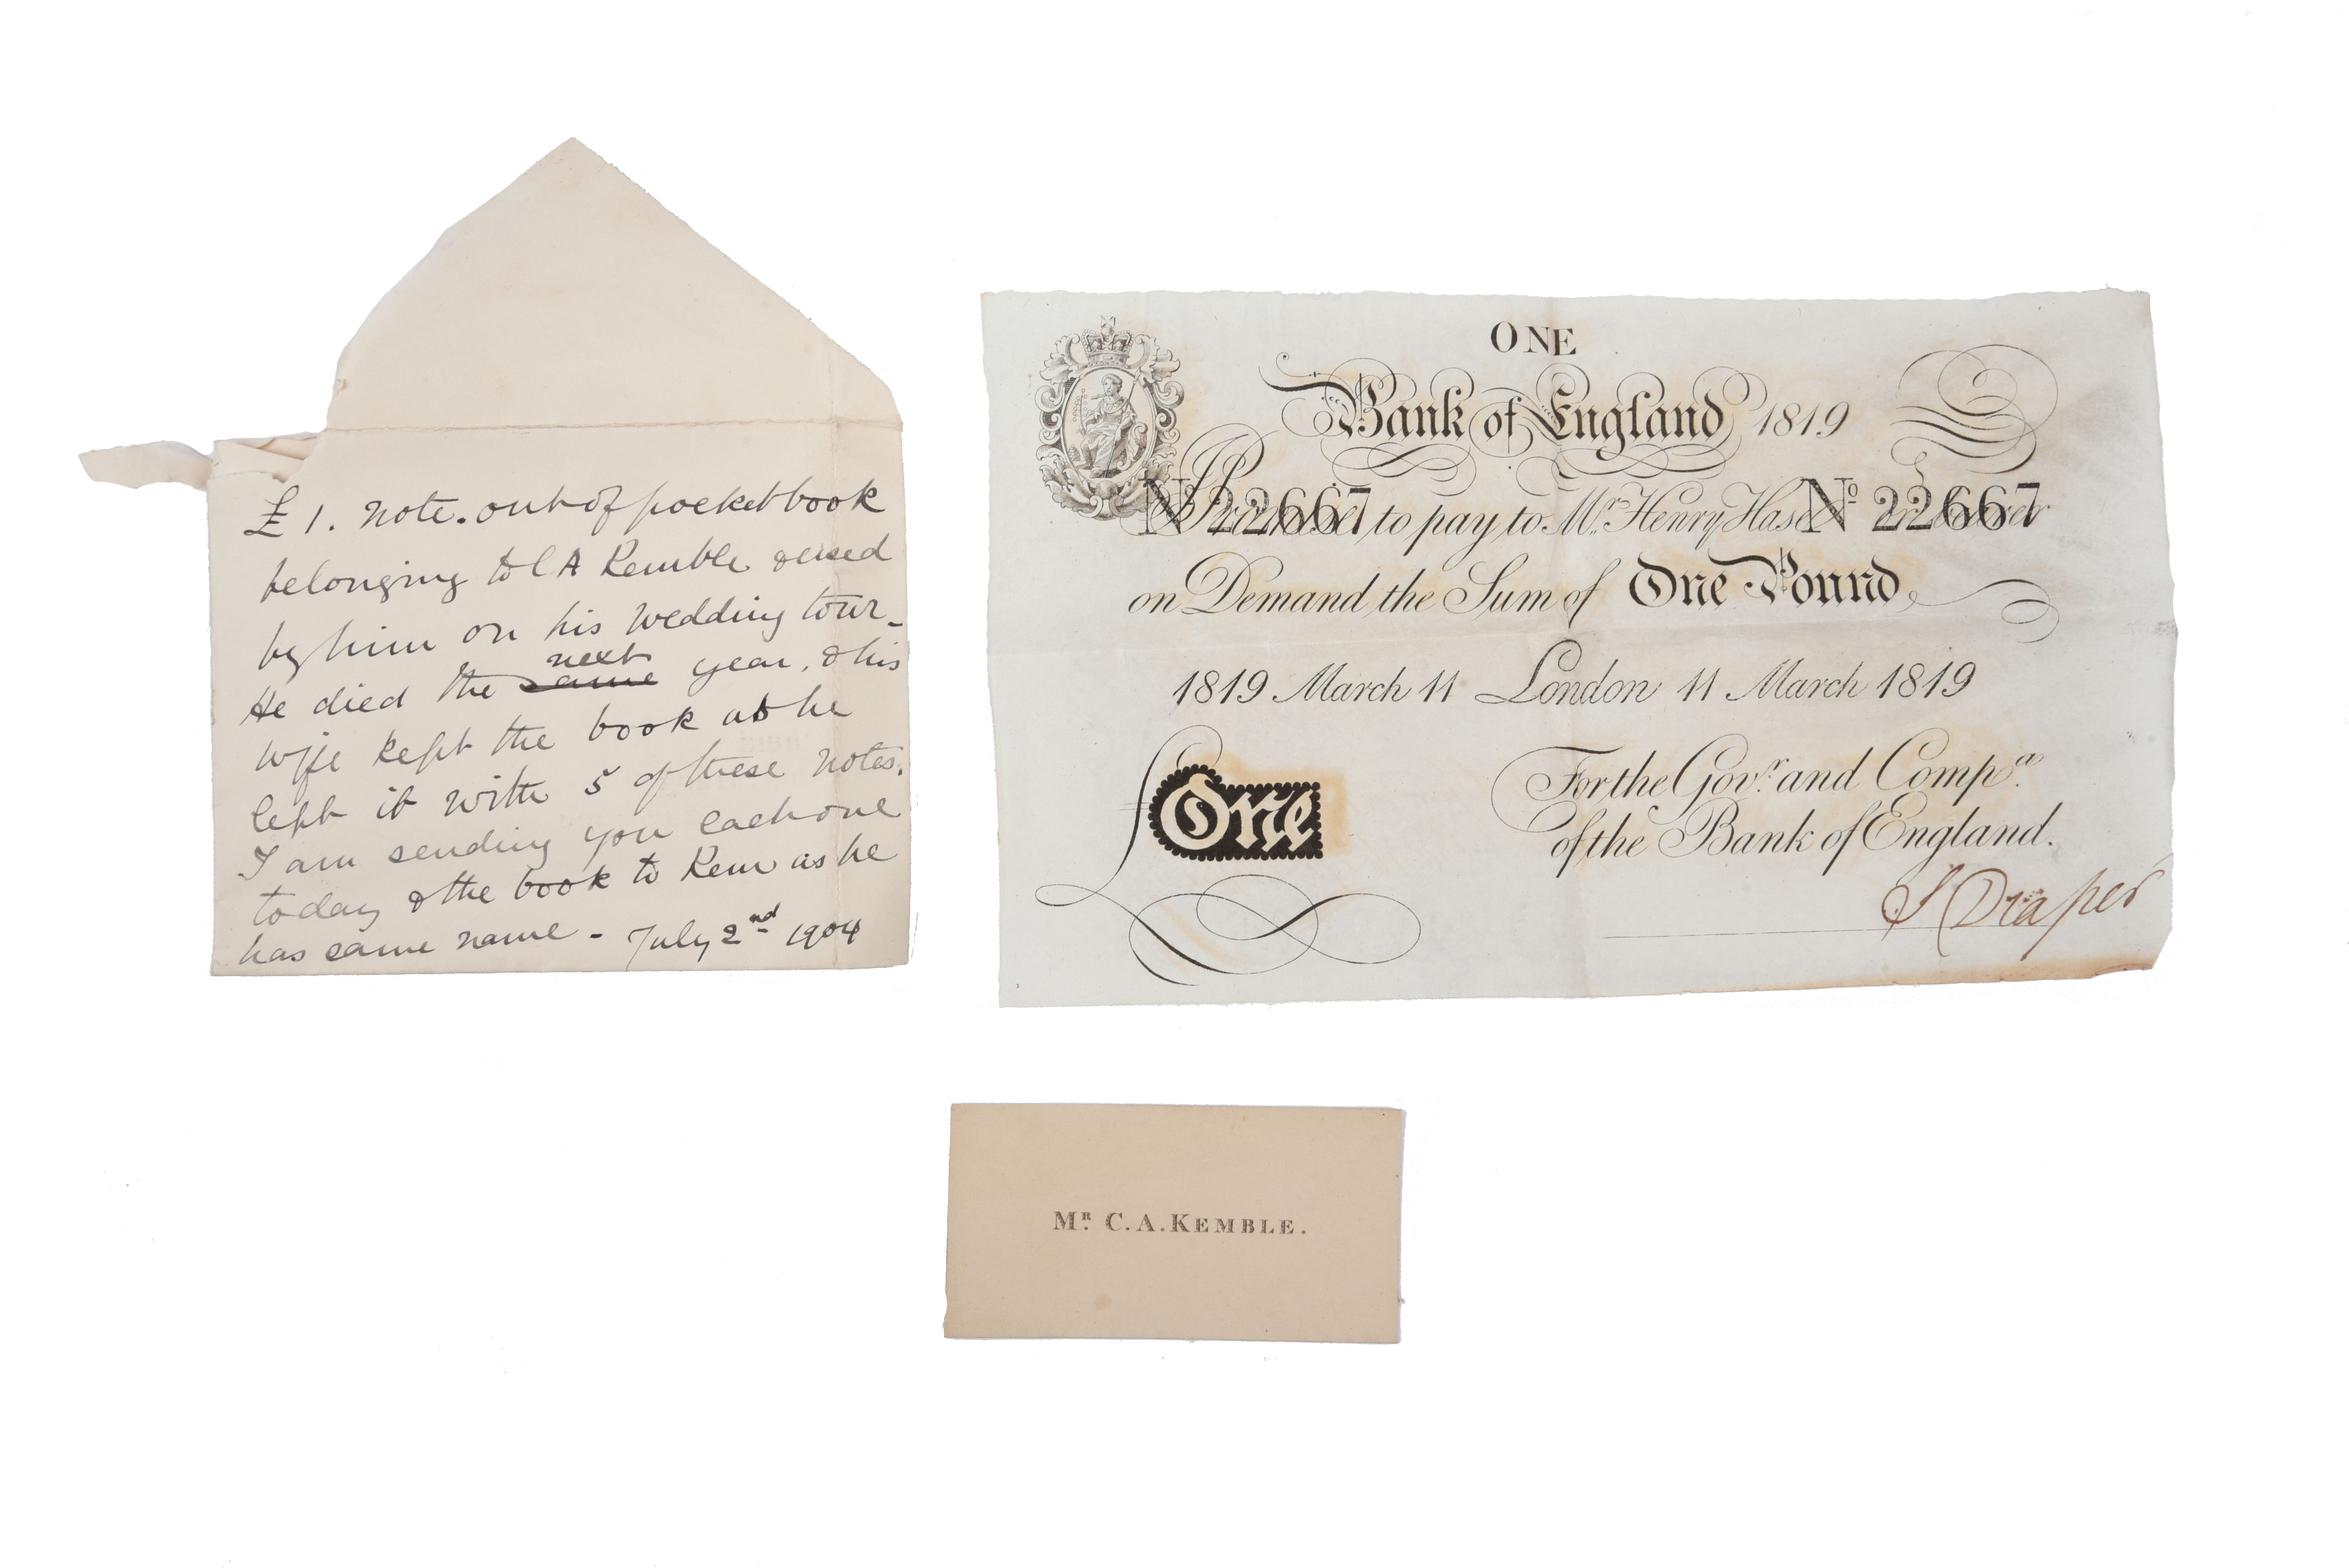 £1. note. out of pocketbook
belonging to C A Kemble & used
by him on his wedding tour -
He died the same next year, & his
wife kept the book as he
left it with 5 of these notes.
I am sending you each one
today & the book to Kem as he
has same name - July 2nd 1904
ONE
Bank of England 1819
Nº 22667 Nº 22667
I Promise to pay to Mr. Henry Hase or bearer
on Demand the Sum of One Pound
1819 March 11 London 11 March 1819
For the Govr. and Compa.
of the Bank of England.
£ One
J Draper
MR. C. A. KEMBLE.